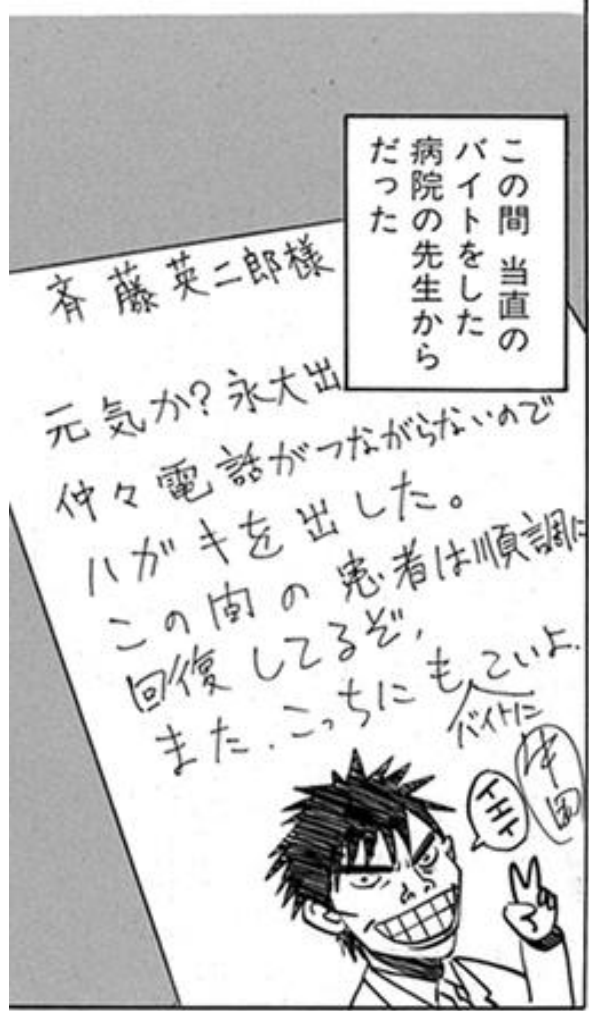 この間 当直の
バイトをした
病院の先生から
だった
斉藤英二郎様
元気か？永大出
仲々電話がつながらないので
ハガキを出した。
この間の患者は順調に
回復してるぞ、
また、こっちにもこいよ。
バイトに
牛田